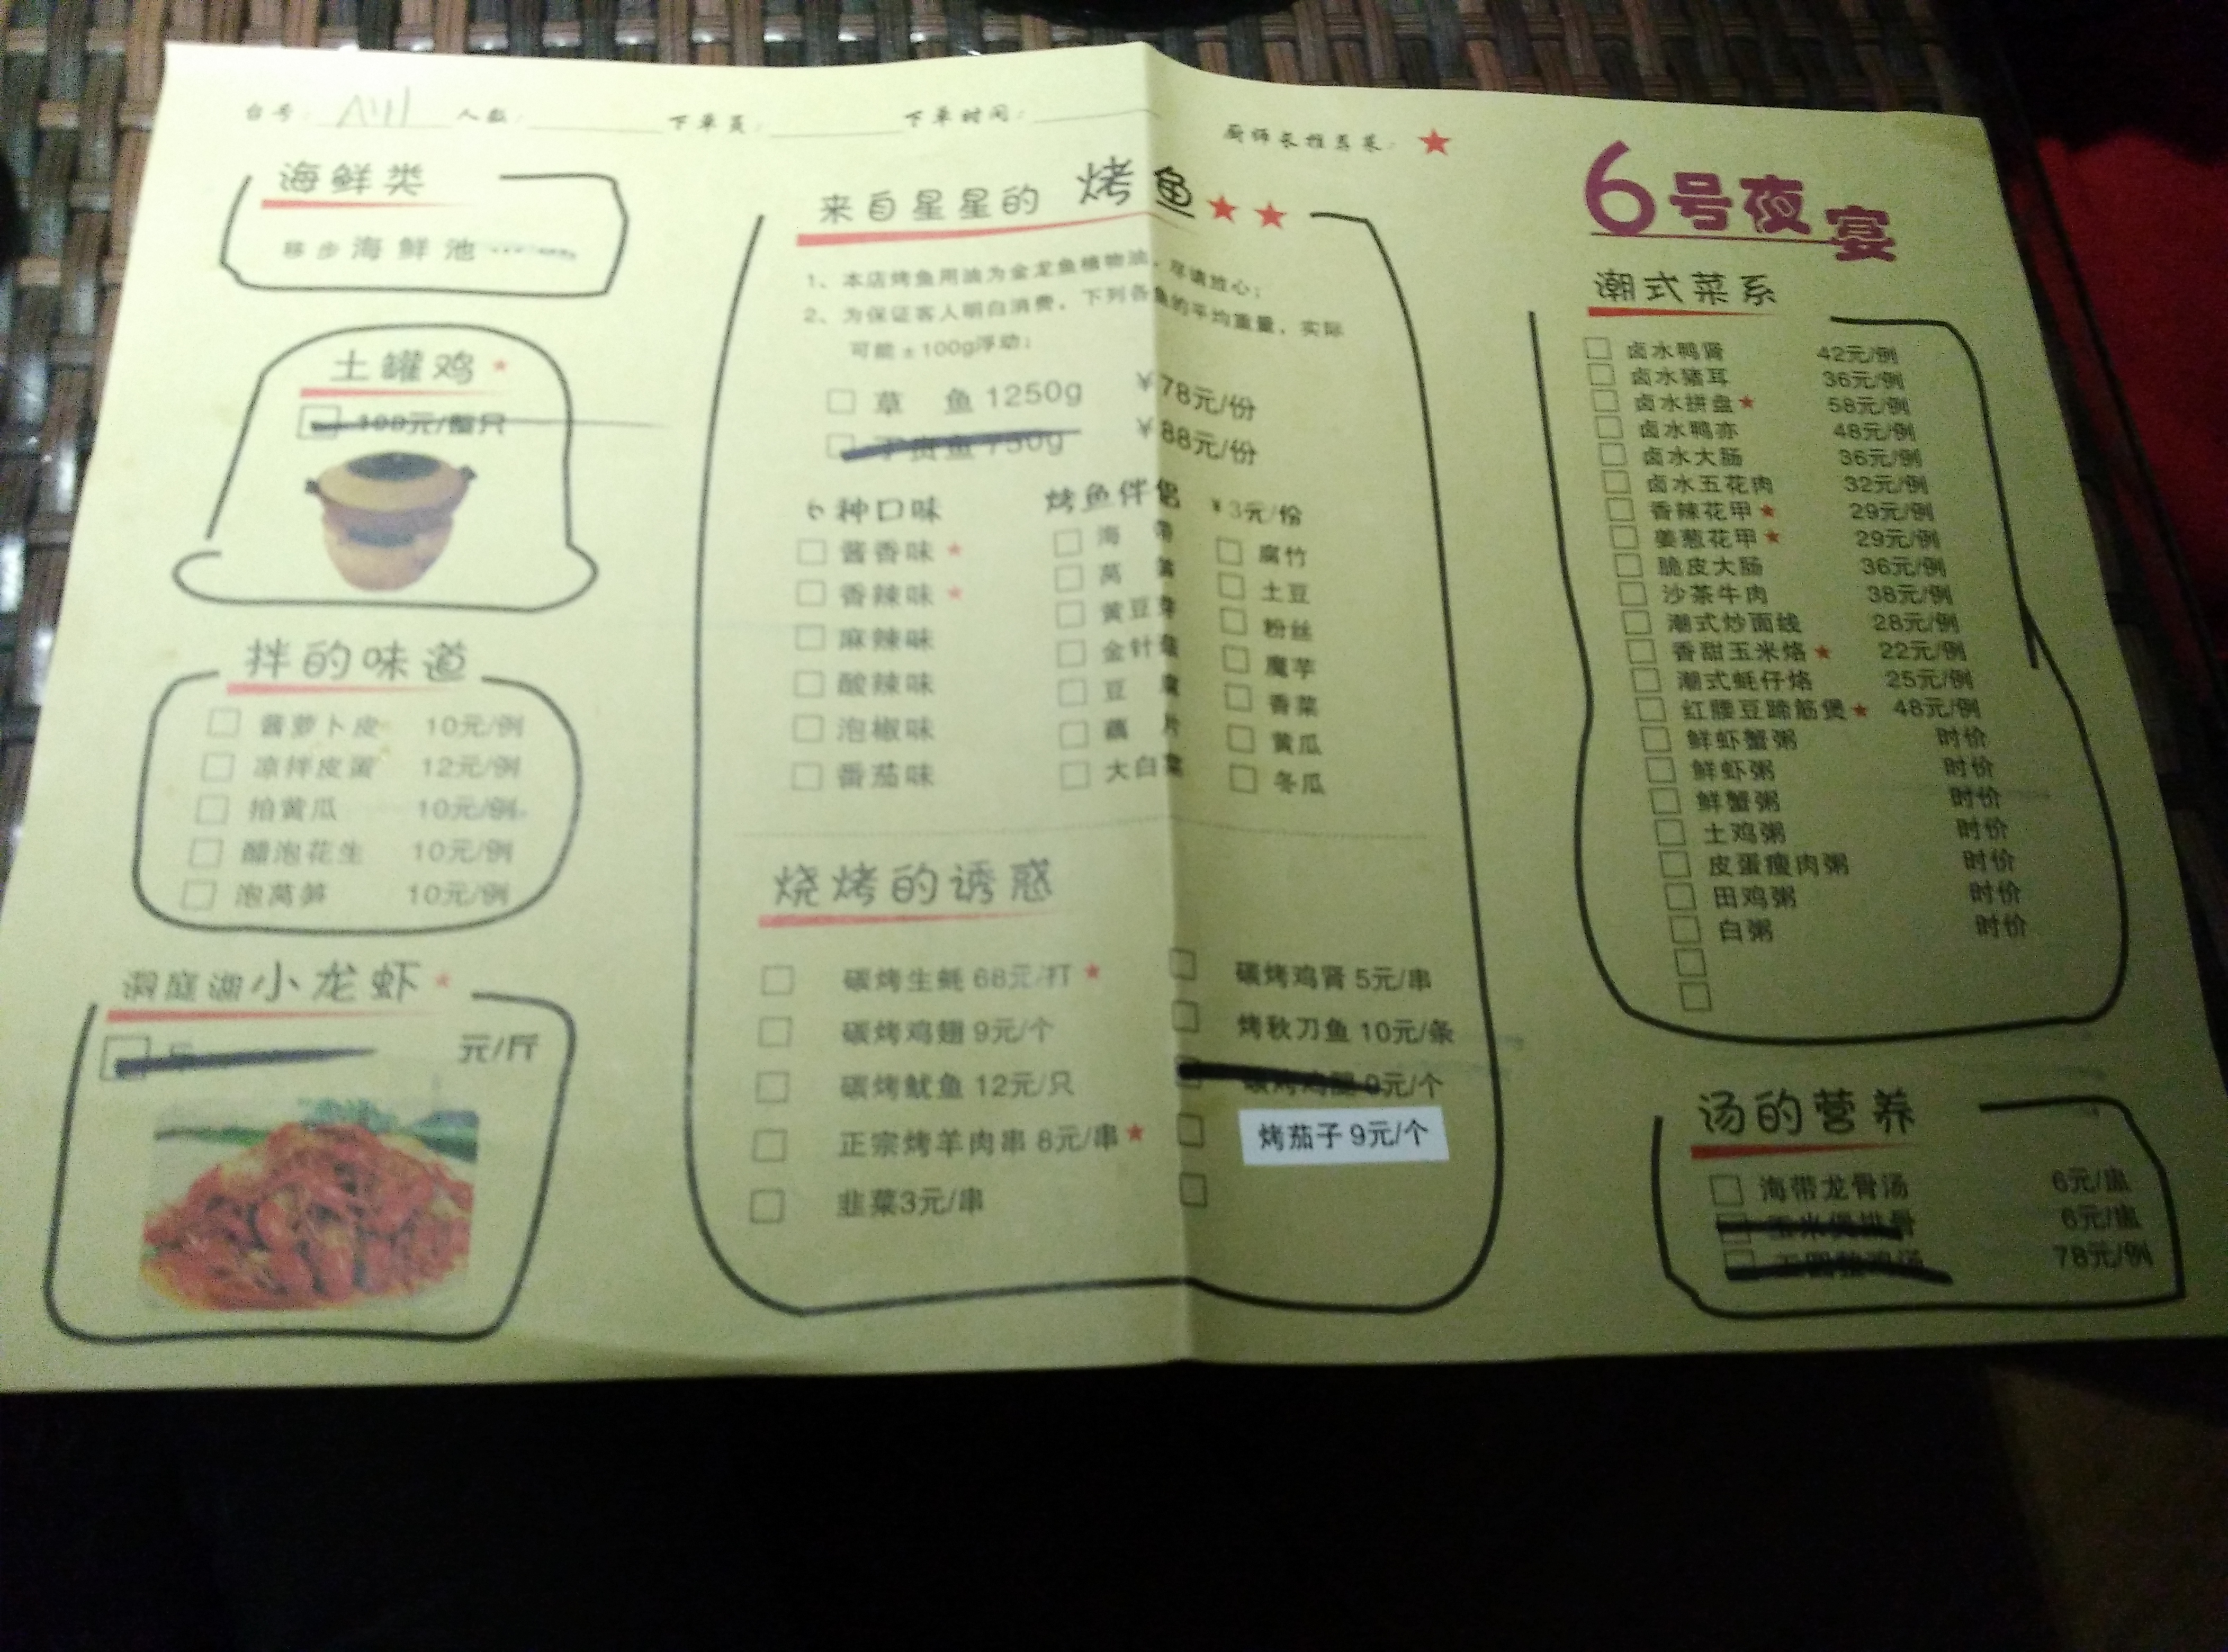 台号： A111 人数： 下单员： 下单时间： 厨师长推荐菜：
海鲜类
移步海鲜池
土罐鸡
100元/整只
拌的味道
酱萝卜皮 10元/例
凉拌皮蛋 12元/例
拍黄瓜 10元/例
醋泡花生 10元/例
泡莴笋 10元/例
洞庭湖小龙虾
元/斤
来自星星的 烤鱼
1、本店烤鱼用油为金龙鱼植物油，尽请放心；
2、为保证客人明白消费，下列各鱼的平均重量，实际
可能±100g浮动；
草 鱼 1250g ￥78元/份
鱼 750g ￥88元/份
6种口味
酱香味
香辣味
麻辣味
酸辣味
泡椒味
番茄味
烤鱼伴侣 ￥3元/份
海 带 腐竹
莴 笋 土豆
黄豆芽 粉丝
金针菇 魔芋
豆 腐 香菜
藕 片 黄瓜
大白菜 冬瓜
烧烤的诱惑
碳烤生蚝 68元/打 碳烤鸡肾 5元/串
碳烤鸡翅 9元/个 烤秋刀鱼 10元/条
碳烤鱿鱼 12元/只 碳烤鸡腿 9元/个
正宗烤羊肉串 8元/串 烤茄子 9元/个
韭菜3元/串
6号夜宴
潮式菜系
卤水鸭肾 42元/例
卤水猪耳 36元/例
卤水拼盘 58元/例
卤水鸭亦 48元/例
卤水大肠 36元/例
卤水五花肉 32元/例
香辣花甲 29元/例
姜葱花甲 29元/例
脆皮大肠 36元/例
沙茶牛肉 38元/例
潮式炒面线 28元/例
香甜玉米烙 22元/例
潮式蚝仔烙 25元/例
红腰豆蹄筋煲 48元/例
鲜虾蟹粥 时价
鲜虾粥 时价
鲜蟹粥 时价
土鸡粥 时价
皮蛋瘦肉粥 时价
田鸡粥 时价
白粥 时价
汤的营养
海带龙骨汤 6元/盅
6元/盅
78元/例